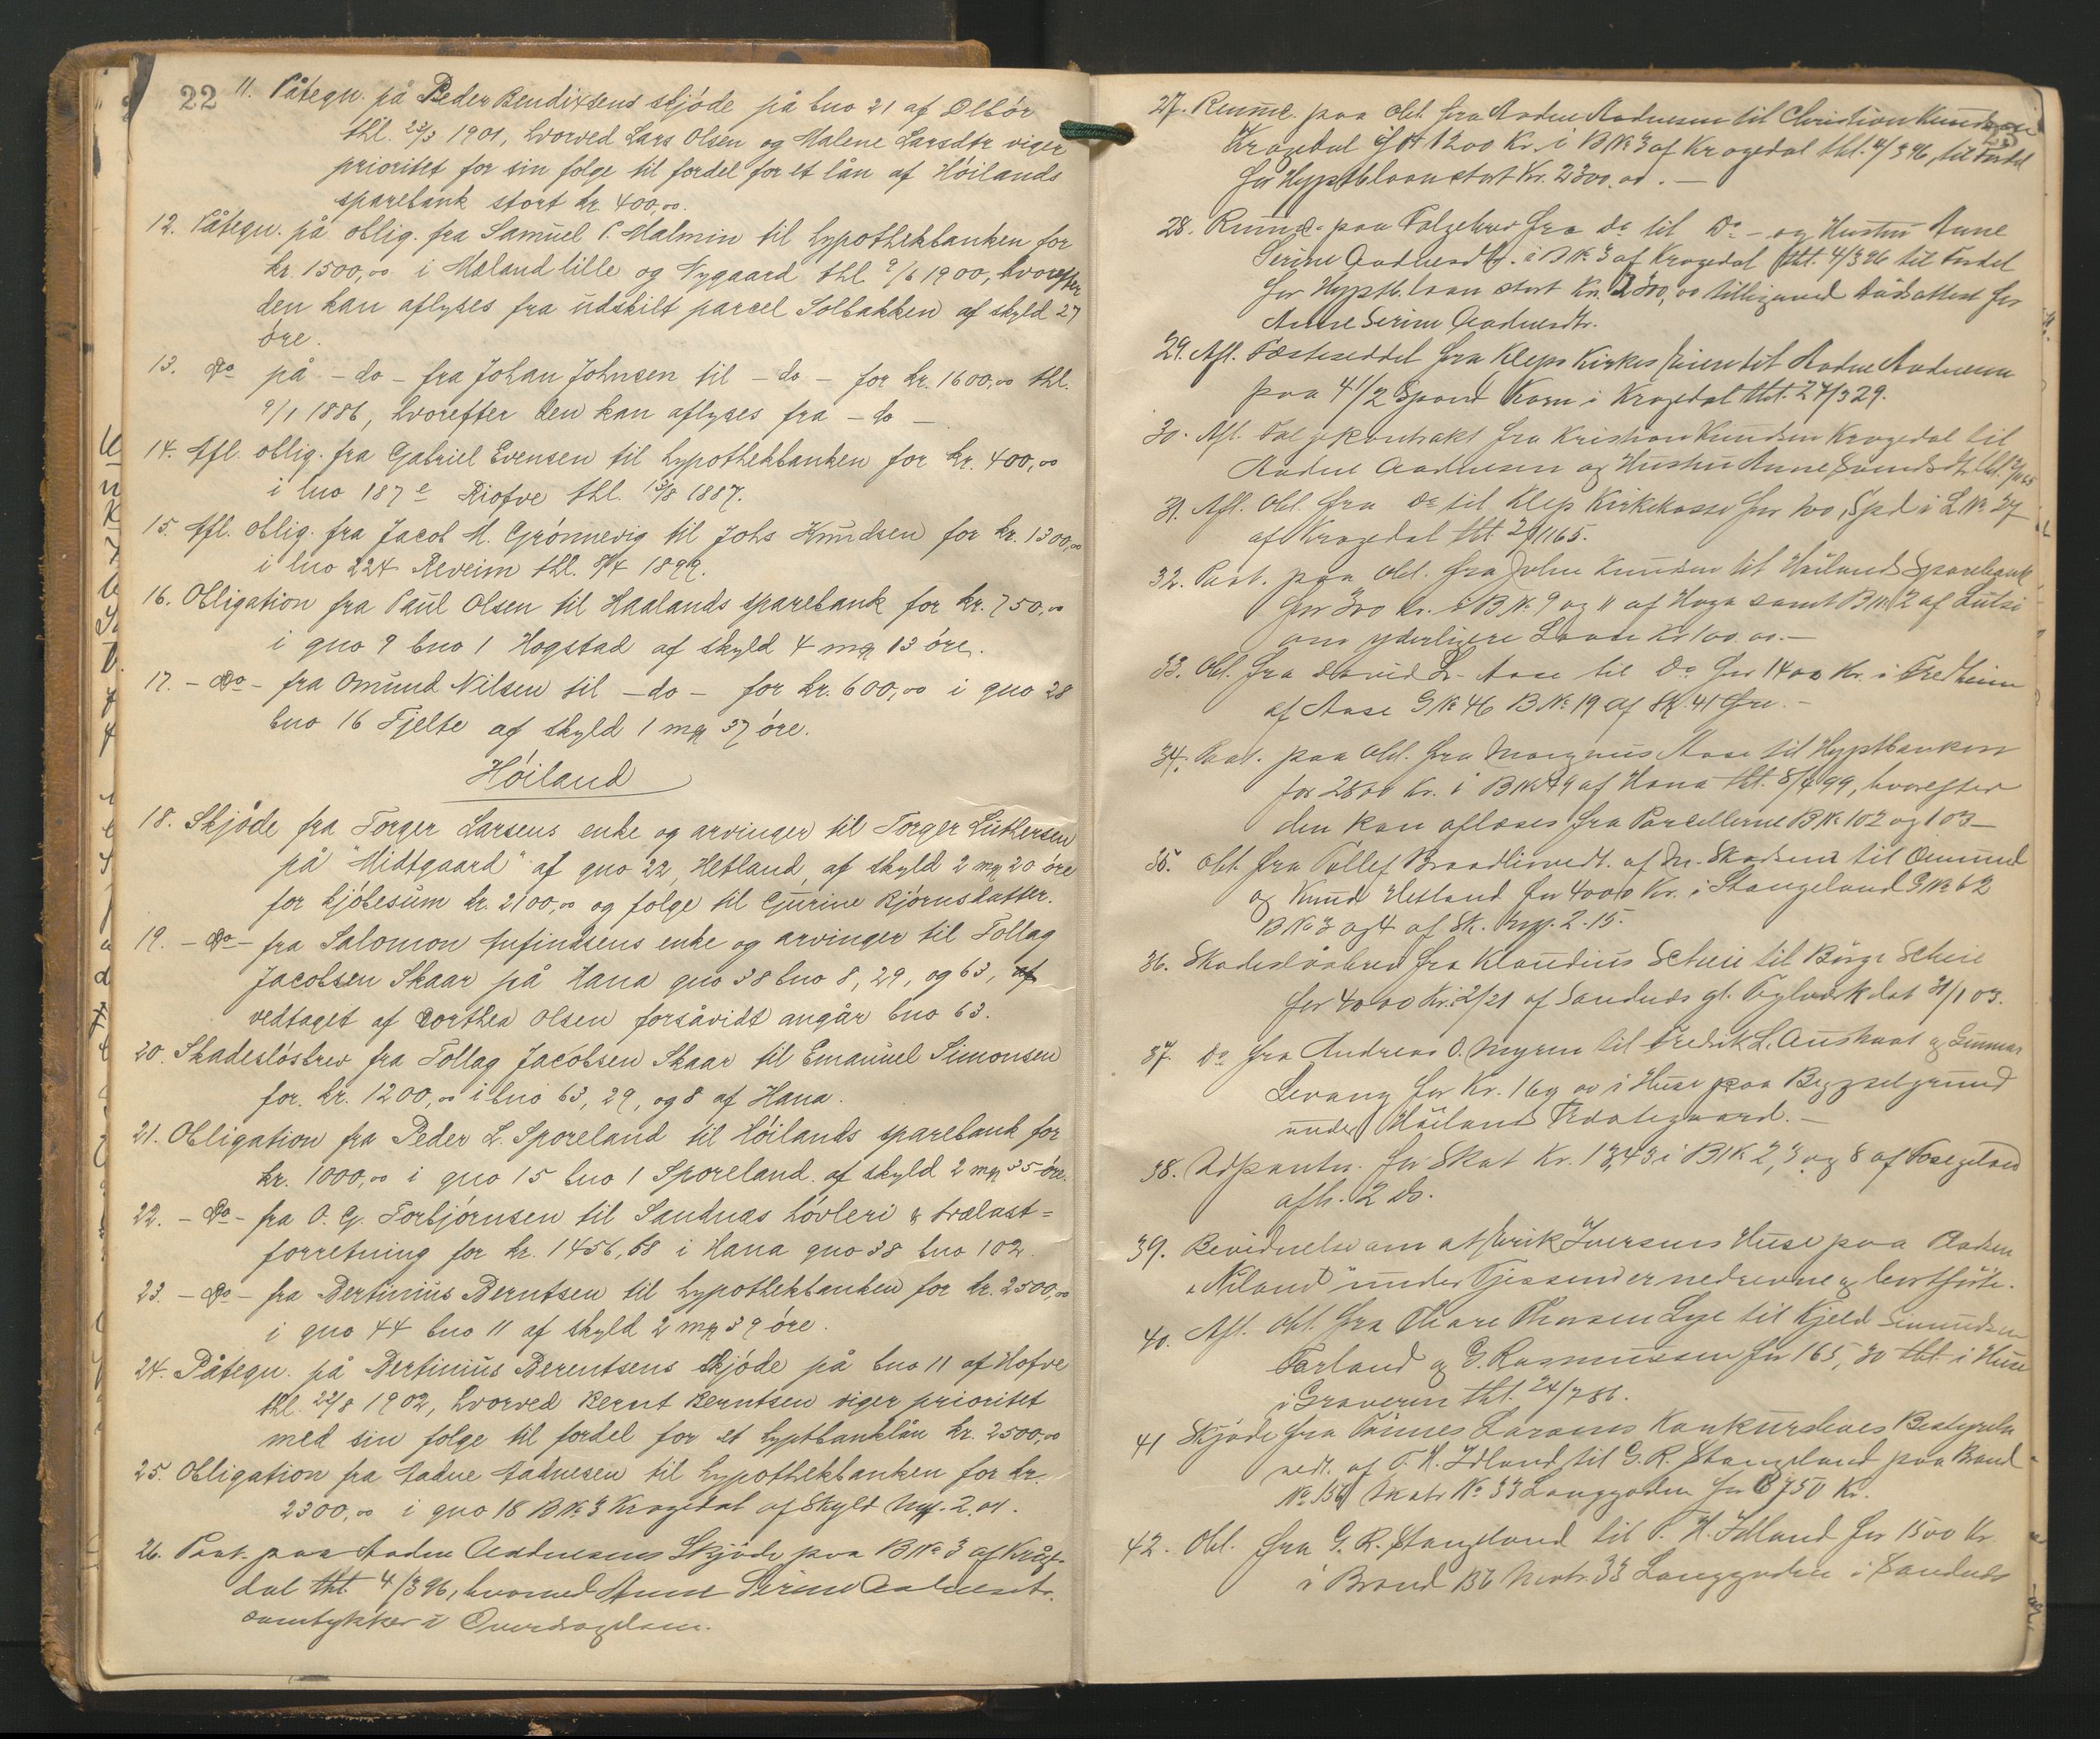 22
11. Påtegn. på Peder Bendixsens skjøde på bno 21 af Olbør
thl. 23/3 1901, hvorved Lars Olsen og Malene Larsdtr viger
prioritet for sin følge til fordel for et lån af Høilands
sparebank stort kr. 400,00.
12. Påtegn. på oblig. fra Samuel P. Malmin til hypothekbanken for
kr. 1500,00 i Mæland lille og Nygaard thl. 9/6 1900, hvorefter
den kan aflyses fra udskilt parcel Solbakken af skyld 27
øre.
13. Do på - do - fra Johan Johnsen til - do - for kr. 1600,00 thl.
9/1 1886, hvorefter den kan aflyses fra - do -
14. Afl. oblig. fra Gabriel Evensen til hypothekbanken for kr. 400,00
i lno 187e Riofve thl. 13/8 1887.
15. Afl. oblig. fra Jacob M. Grønnevig til Johs Knudsen for kr. 1300,00
i lno 224 Reveim thl. 8/4 1899.
16. Obligation fra Paul Olsen til Haalands sparebank for kr. 750,00
i gno 9 bno 1 Hogstad af skyld 4 mrk 13 øre.
17. - Do - fra Omund Nilsen til - do - for kr. 600,00 i gno 28
bno 16 Tjelte af skyld 1 mrk 37 øre.
Høiland
18. Skjøde fra Torger Larsens enke og arvinger til Torger Luthersen
på "Midtgaard" af gno 22, Hetland, af skyld 2 mrk 20 øre
for kjøbesum kr. 2100,00 og følge til Gurine Bjørnsdatter.
19. - Do - fra Salomon Anfindsens enke og arvinger til Tollag
Jacobsen Skaar på Hana gno 38 bno 8, 29, og 63, af
vedtaget af Dorthea Olsen forsåvidt angår bno 63.
20. Skadesløsbrev fra Tollag Jacobsen Skaar til Emanuel Simonsen
for. kr. 1200,00 i bno 63, 29, og 8 af Hana.
21. Obligation fra Peder L. Sporeland til Høilands sparebank for
kr. 1000,00 i gno 15 bno 1 Sporeland af skyld 2 mrk 35 øre.
22. - Do - fra O. G. Torbjørnsen til Sandnæs høvleri & trælast=
forretning for kr. 1456,68 i Hana gno 38 bno 102.
23. - Do - fra Bertinius Berntsen til hypothekbanken for kr. 2500,00
i gno 44 bno 11 af skyld 2 mrk 39 øre.
24. Påtegn. på Bertinius Berentsens skjøde på bno 11 af Hofve
thl. 22/8 1902, hvorved Bernt Berntsen viger prioritet
med sin følge til fordel for et hyptbanklån kr. 2500,00
25. Obligation fra Aadne Aadnesen til hypothekbanken for kr.
2300,00 i gno 18 B No 3 Krogedal af Skyld Mrk. 2.01.
26. Paat. paa Aadne Aadnesens Skjøde paa B No 3 af Kroge-
dal tht 4/3 96, hvorved Anne Serine Aadnesdtr.
samtykker i Overdragelsen.
27. paa Obl. fra Aadne Aadnesen til Christian Knudsen
Krogedal for 1200 Kr. i B No 3 af Krogedal thl. 4/3 96, til Fordel
for Hyptbloan stort Kr. 2300.00. -
28. paa Følgebrev fra do til Do - og Hustru Anne
Serine Aadnesdtr. i B No 3 af Krogedal tht. 4/3 96 til Fordel
for Hyptb. loan stort Kr. 2300,00 tilligemed Dødsattest for
Anne Serine Aadnesdtr.
29. Afl. Fæsteseddel fra Kleps Kirkes Eiere til Aadne Aadnesen
paa 4 1/2 Spand Korn i Krogedal tht. 27/3 29.
30. Afl. Følgekontrakt fra Kristian Knudsen Krogedal til
Aadne Aadnesen og Hustru Anne
31. Afl. Obl. fra Do til Klep Kirkekasse for 200 Spd i L No 27
af Krogedal tht
32. Paat. paa Obl. fra John Knudsen til Høilands Sparebank
for 300 Kr. i B No 9 og 11 af Hoga samt B No 12 af Lutsi
om yderligere Laan Kr 100.00. -
33. Obl. fra David L. Aase til Do for 1400 Kr. i Fredheim
af Aase G No 46 B No 19 af Sk. 41 Øre. -
34. Paat. paa Obl. fra Magnus Aase til Hyptbanken
for 2800 Kr. i B No 49 af Hana tht. 8/4 99, hvorefter
den kan aflæses fra Parcellerne B No 102 og 103 -
35. Obl. fra Tollef Braadli vedt. af til Omund
og Knud Hetland for 4000 Kr. i Stangeland G No 62
B No 3 og 4 af Sk. Mrk. 2.15.
36. Skadesløsbrev fra Klaudius Scheie til Börge Scheie
for 4000 Kr. i 2/21 af Sandnæs gl. Teglværk dat 31/1 03.
37. Do fra Andreas O. Myren til Fredrik L. Austvoll og Gunnar
Levang for Kr. 169 00 i Huse paa Byggselgrund
under Höiland Prestegaard. -
38. Udpantn. for Skat Kr. 13,43 i B No 2, 3 og 8 af Foss
afh. 2 ds.
39. Bevidnelse om at Eirik Iversens Huse paa Pladsen
"Niland" under Gjessen er nedrevne og bortførte.
40. Afl. Obl. fra Thore Thorsen Lye til Kjeld Simundsen
Tarland og G. Rasmussen for 165,30 tht. i Huse
i Graveren tht. 24/7 86.
41 Skjøde fra Tønnes Larsens Konkursboes Bestyrelse
vedt. af T. H. Idland til G. R. Stangeland paa Brand
No 156 Matr No 33 Langgaden for 8750 Kr.
42. Obl. fra G. R. Stangeland til T. H. Idland for 1500 Kr
i Brand 156 Matr. 33 Langgaden i Sandnæs